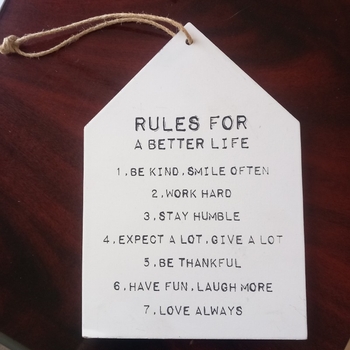 RULES FOR
A BETTER LIFE
1.BE KIND.SMILE OFTEN
2.WORK HARD
3.STAY HUMBLE
4.EXPECT A LOT.GIVE A LOT
5.BE THANKFUL
6.HAVE FUN.LAUGH MORE
7.LOVE ALWAYS